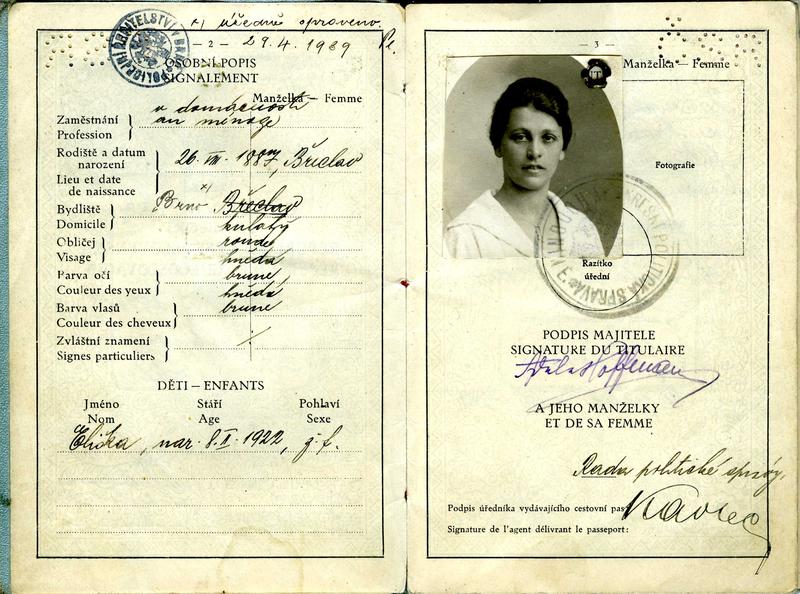 x) úředně opraveno.
— 2 — 29.4. 1939
OSOBNÍ POPIS
SIGNALEMENT
Manželka — Femme
Zaměstnání
Profession
v domácnosti
au ménage
Rodiště a datum
narození
Lieu et date
de naissance
26. VIII. 1887, Břeclav
Bydliště
Domicile
Brno x) Břeclav
Obličej
Visage
kulatý
ronde
Barva očí
Couleur des yeux
hnědá
brune
Barva vlasů
Couleur des cheveux
hnědá
brune
Zvláštní znamení
Signes particuliers
DĚTI — ENFANTS
Jméno Stáří Pohlaví
Nom Age Sexe
Eliška, nar. 8. II. 1922, ž. f.
— 3 —
Manželka — Femme
Fotografie
Razítko
úřední
OKRESNÍ POLITICKÁ SPRÁVA
PODPIS MAJITELE
SIGNATURE DU TITULAIRE
Hoffmann
A JEHO MANŽELKY
ET DE SA FEMME
Rada politické správy.
Podpis úředníka vydávajícího cestovní pas
Signature de l'agent délivrant le passeport: